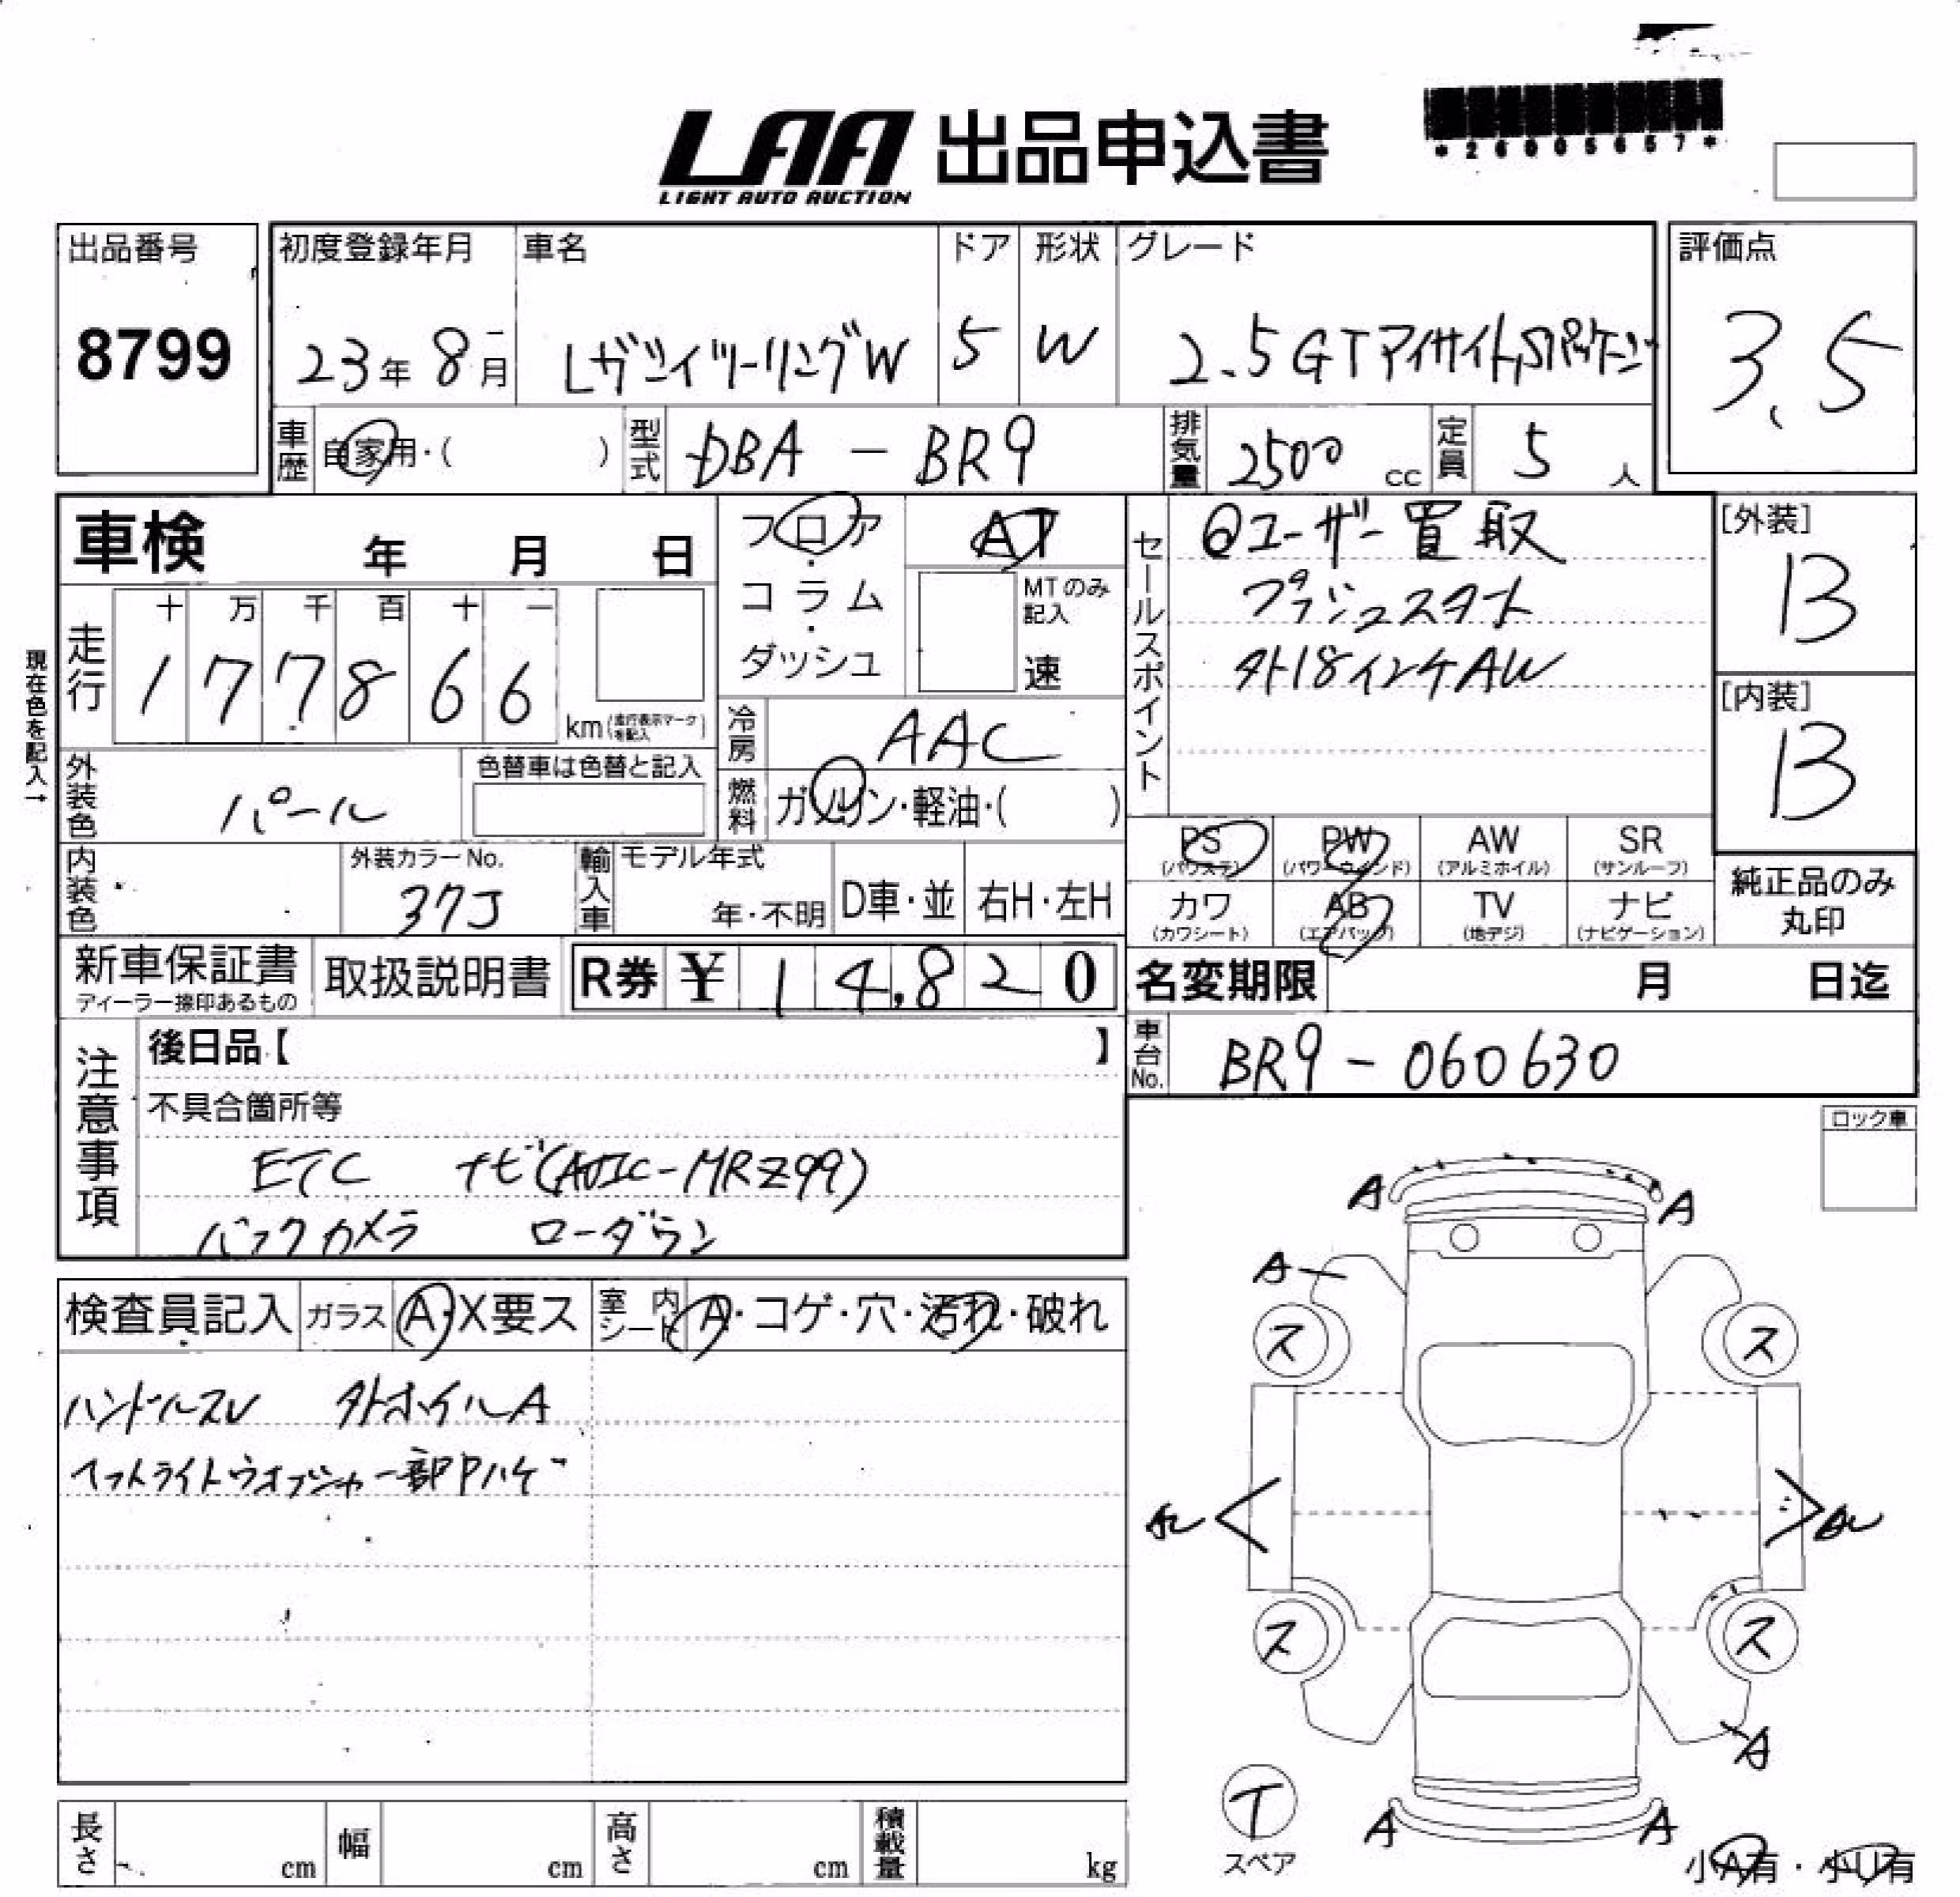 LAA 出品申込書
LIGHT AUTO AUCTION
*26005657*
出品番号
8799
初度登録年月
23年 8月
車名
Lガツィツーリング W
ドア
5
形状
W
グレード
2.5GTアイサイトSパッケージ
評価点
3.5
車歴
自家用・( )
型式
DBA - BR9
排気量
2500 cc
定員
5 人
車検 年 月 日
フロア・コラム・ダッシュ
AT
MTのみ記入
速
セールスポイント
ユーザー買取
プッシュスタート
外18インチAW
[外装]
B
[内装]
B
現在色を記入→
走行
十 万 千 百 十 一
1 7 7 8 6 6
km(走行表示マークを記入)
冷房
AAC
外装色
パール
色替車は色替と記入
燃料
ガソリン・軽油・( )
PS (パワステ)
PW (パワーウインド)
AW (アルミホイル)
SR (サンルーフ)
カワ (カワシート)
AB (エアバッグ)
TV (地デジ)
ナビ (ナビゲーション)
純正品のみ丸印
内装色
外装カラーNo.
37J
輸入車
モデル年式
年・不明
D車・並
右H・左H
新車保証書
ディーラー捺印あるもの
取扱説明書
R券 ¥ 14,820
名変期限 月 日迄
車台No.
BR9-060630
注意事項
後日品【 】
不具合箇所等
ETC ナビ(AVIC-MRZ99)
バックカメラ ローダウン
ロック車
検査員記入
ガラス A・X要ス
室内シート A・コゲ・穴・汚れ・破れ
ハンドルスレ 外ホイルA
ヘッドライトウオッシャー一部Pハゲ
A A
A
ス ス
ス ス
A
A A
T
スペア
小A有・小U有
長さ cm
幅 cm
高さ cm
積載量 kg